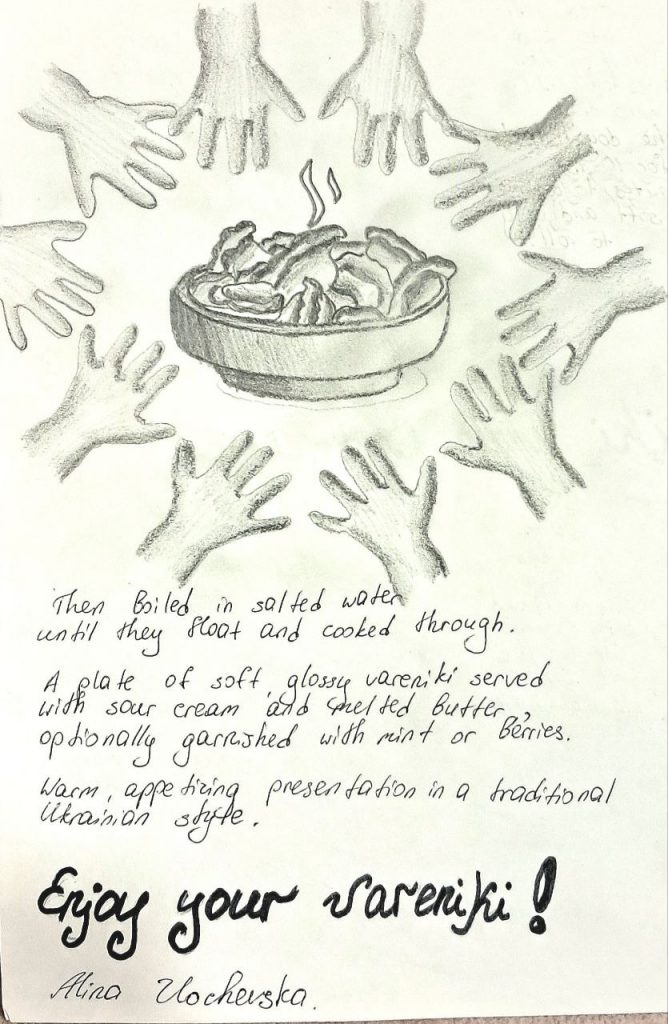 Then Boiled in salted water
until they float and cooked through.
A plate of soft, glossy vareniki served
with sour cream and melted butter,
optionally garnished with mint or berries.
Warm, appetizing presentation in a traditional
Ukrainian style.
Enjoy your vareniki!
Alina